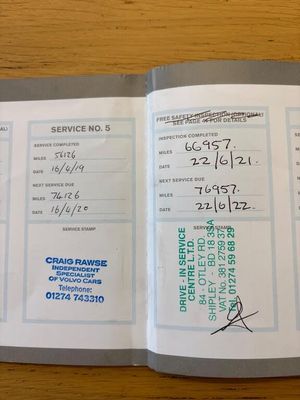 SERVICE NO. 5
SERVICE COMPLETED
MILES 56126
DATE 16/4/19
NEXT SERVICE DUE
MILES 76126
DATE 16/4/20
SERVICE STAMP
CRAIG RAWSE
INDEPENDENT
SPECIALIST
OF VOLVO CARS
Telephone:
01274 743310
FREE SAFETY INSPECTION (OPTIONAL)
SEE PAGE FOR DETAILS
INSPECTION COMPLETED
MILES 66957.
DATE 22/6/21.
NEXT SERVICE DUE
MILES 76957.
DATE 22/6/22.
SERVICE STAMP
DRIVE - IN SERVICE
CENTRE L.T.D.
84 - OTLEY RD
SHIPLEY - BD 18 3SA
VAT No. 381 2759 37
Tel. 01274 59 68 29